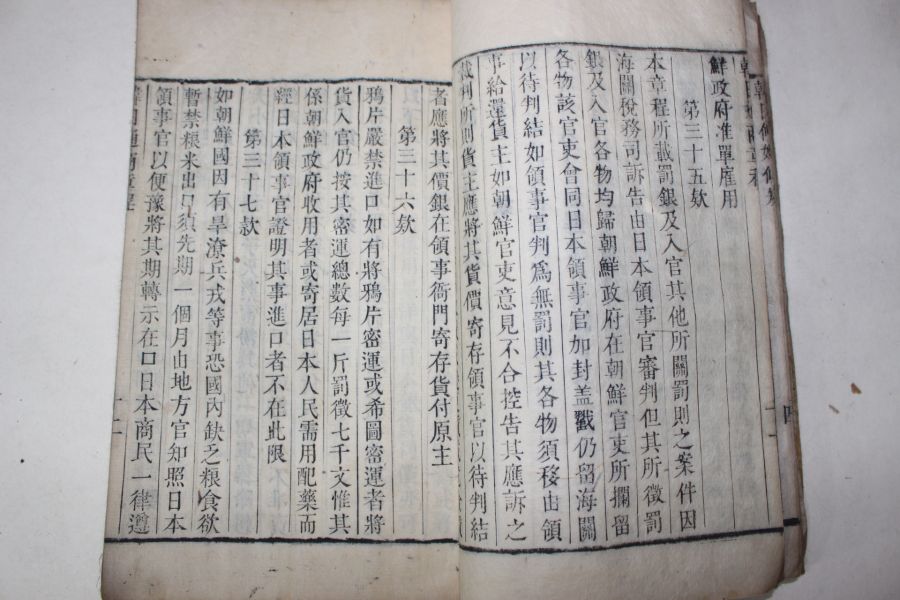 鮮政府准單雇用
第三十五欵
本章程所載罰銀及入官其他所關罰則之案件因
海關稅務司訴告由日本領事官審判但其所徵罰
銀及入官各物均歸朝鮮政府在朝鮮官吏所攔留
各物該官吏會同日本領事官加封盖戳仍留海關
以待判結如領事官判爲無罰則其各物須移由領
事給還貨主如朝鮮官吏意見不合控告其應訴之
裁判所則貨主應將其貨價寄存領事官以待判結
者應將其價銀在領事衙門寄存貨付原主
第三十六欵
鴉片嚴禁進口如有將鴉片密運或希圖密運者將
貨入官仍按其密運總數每一斤罰徵七千文惟其
係朝鮮政府收用者或寄居日本人民需用配藥而
經日本領事官證明其事進口者不在此限
第三十七款
如朝鮮國因有旱潦兵戎等事恐國內缺乏粮食欲
暫禁粮米出口須先期一個月由地方官知照日本
領事官以便豫將其期轉示在口日本商民一律遵